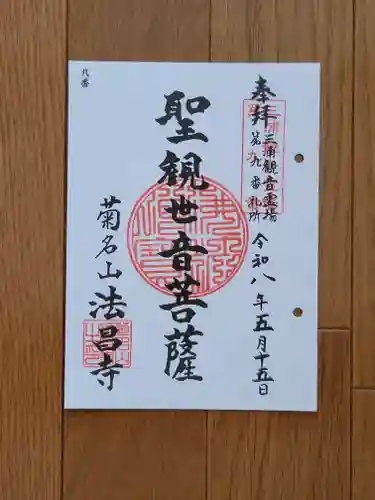 奉拝
三浦観音霊場
第九番札所
令和八年五月十五日
聖観世音菩薩
菊名山
法昌寺
九番